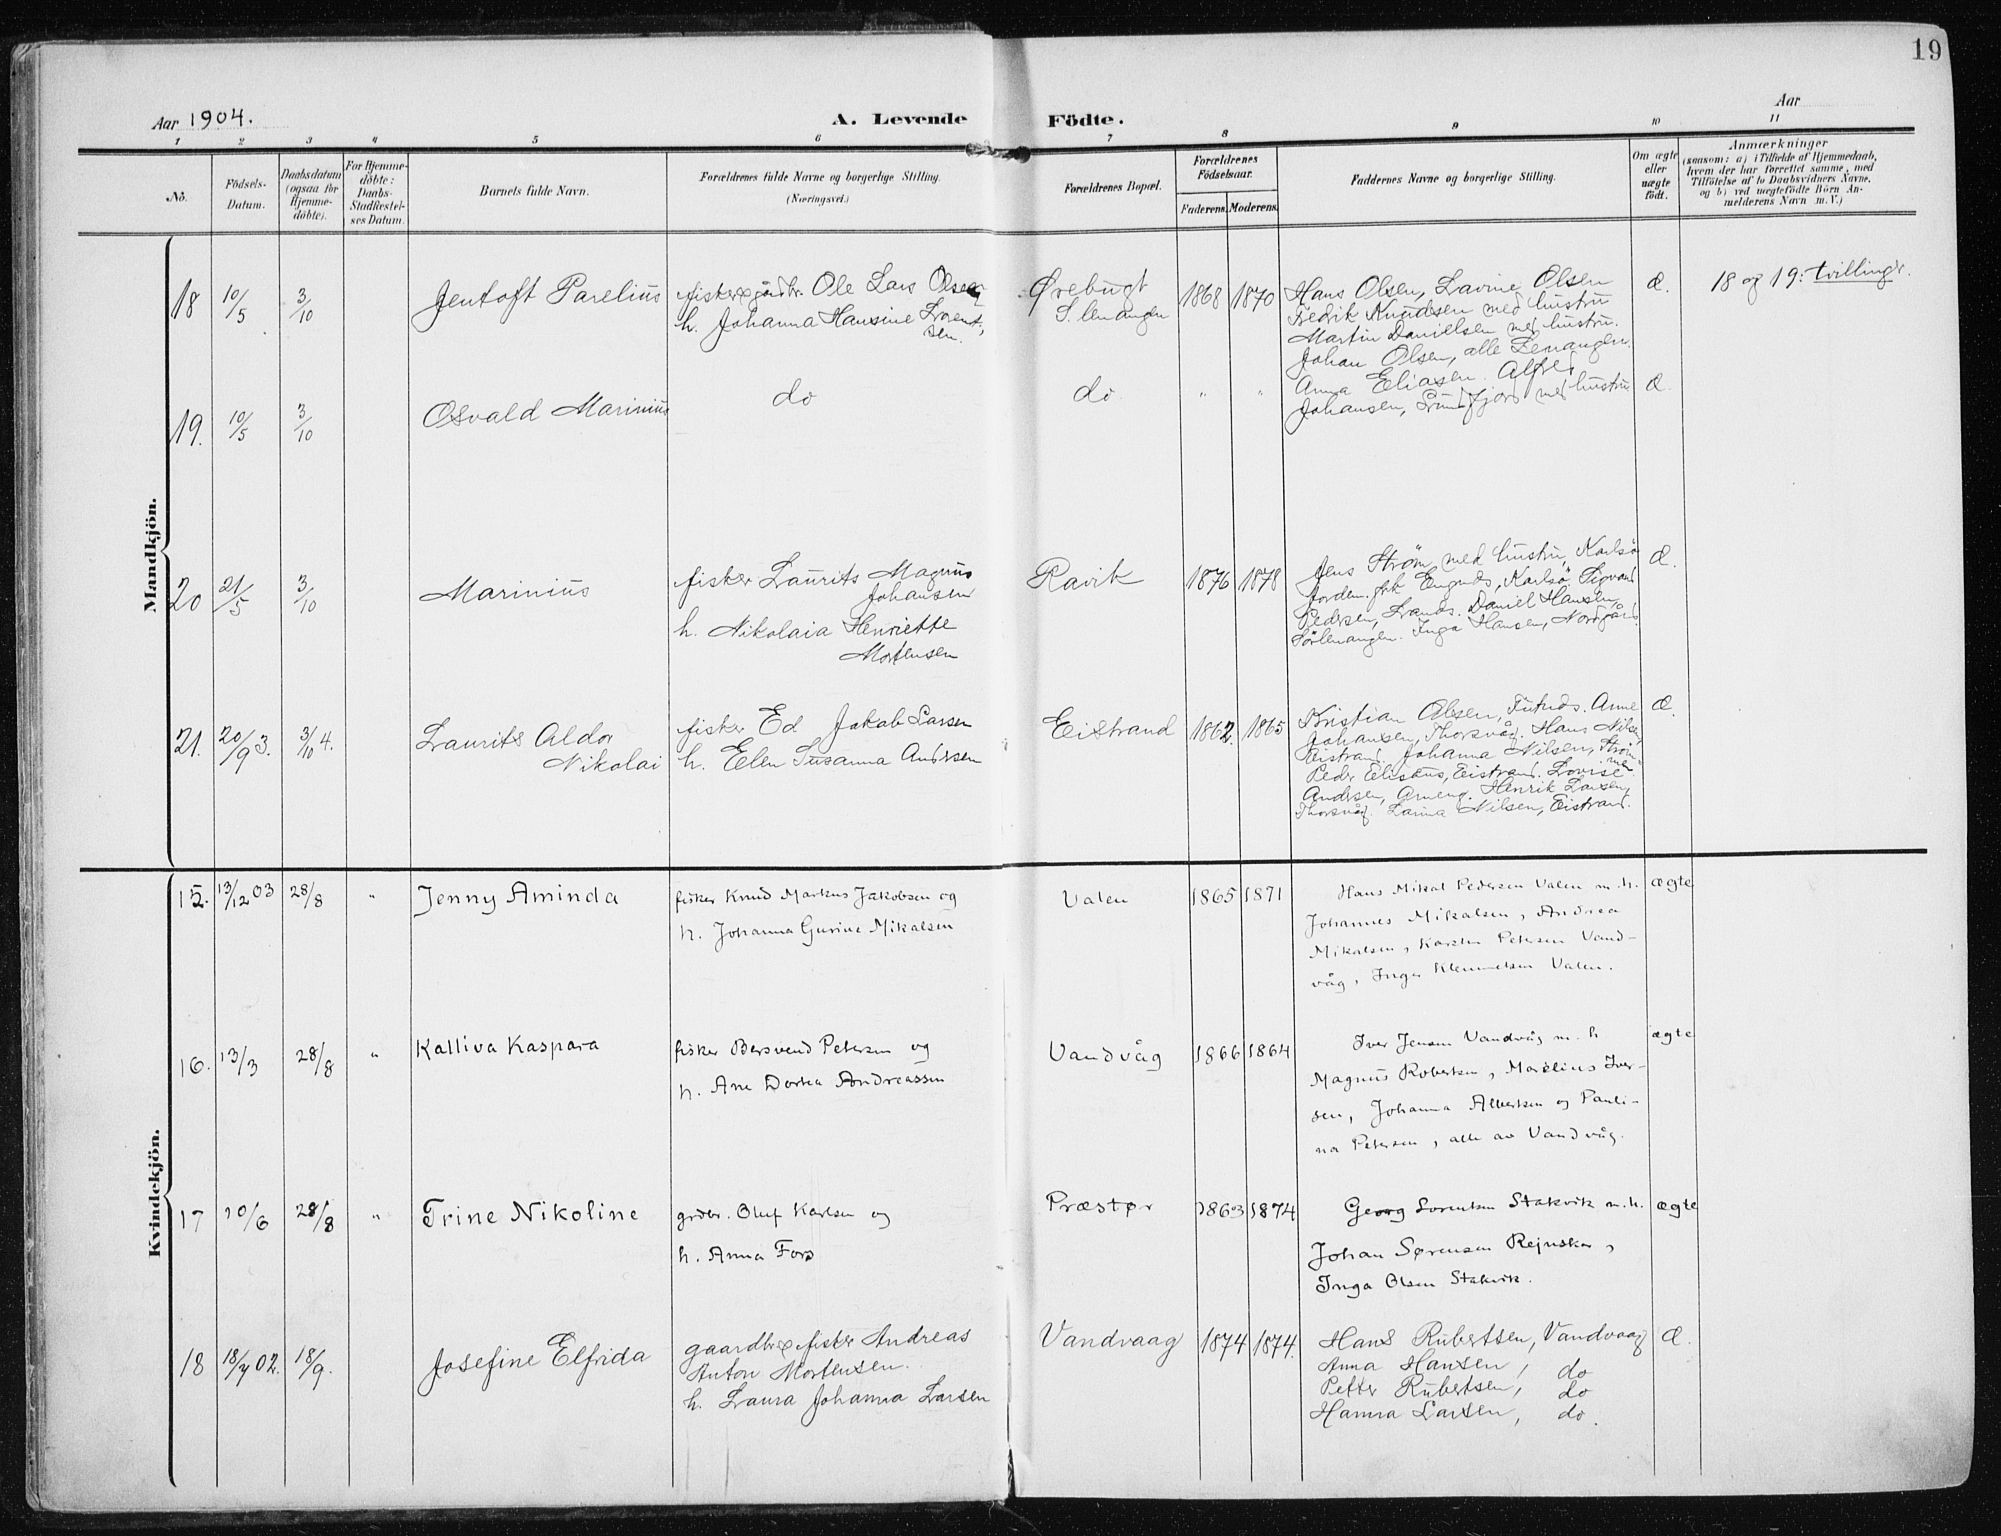 19
Aar 1904.
A. Levende Födte.
Aar
1 2 3 4 5 6 7 8 9 10 11
No.
Födsels-
Datum.
Daabsdatum
(ogsaa for
Hjemme-
döbte).
For Hjemme-
döbte:
Daabs-
Stadfæstel-
ses Datum.
Barnets fulde Navn.
Forældrenes fulde Navne og borgerlige Stilling.
(Næringsvei.)
Forældrenes Bopæl.
Forældrenes
Födselsaar.
Faderens. Moderens.
Faddernes Navne og borgerlige Stilling.
Om ægte
eller
uægte
födt.
Anmærkninger
(saasom: a) i Tilfælde af Hjemmedaab,
hvem der har forrettet samme, med
Tilföielse af to Daabsvidners Navne,
og b) ved uægtefödte Börn An-
melderens Navn m. V.)
Mandkjön.
18 10/5 3/10
Jentoft Parelius
fisker & gårdbr. Ole Lars Olsen
h. Johanna Hansine
Ørebugt
S. lenangen
1868 1870
Hans Olsen, Lavine Olsen
Fedrik Knudsen med hustru
Martin Danielsen med hustru.
Johan Olsen, alle Lenangen.
Æ.
18 og 19: tvilling'r.
19. 10/5 3/10
Osvald Marinius
do
do
" "
Anna Eliasen. Alfred
Johansen, Grundfjord med hustru
Æ.
20 21/5 3/10
Marinius
fisker Laurits Magnus
Johansen
h. Nikolaia Henriette
Mortensen
Ravik
1876 1878
Jens Strøm med hustru, Karlsø
Pedersen, Daniel Hansen,
Sörlenangen. Inga Hansen, Nordgård.
Æ.
21. 20/9 3. 3/10 4.
Laurits Aldor
Nikolai
fisker Ed Jakob Larsen
h. Elen Susanna Andrsen
Eistrand
1862. 1865
Kristian Olsen, Anne
Johansen, Thorsvåg. Hans Nilsen,
Eistrand. Johanna Nilsen,
Peder Eistrand. Lovise
Andrsen, Henrik Larsen,
Thorsvåg. Nilsen, Eistrand.
Æ.
Kvindekjön.
15. 13/12 03 28/8 "
Jenny Aminda
fisker Knud Markus Jakobsen og
h. Johanna Gurine Mikalsen
Valen
1865 1871
Hans Mikal Pedersen Valen m. h.
Johannes Mikalsen, Andrea
Mikalsen, Karsten Petersen Vand-
våg, Inger Klemmetsen Valen.
ægte
16. 13/3 28/8 "
Kalliva Kaspara
fisker Bersvend Petersen og
h. Ane Dortea Andreassen
Vandvåg
1866 1864
Iver Jensen Vandvåg m. h
Magnus Robertsen, Marelius Iver-
sen, Johanna Albertsen og Pauli-
na Petersen, alle av Vandvåg.
ægte
17 20/6 28/8 "
Trine Nikoline
grdbr. Oluf Karlsen og
h. Anna Fors
Præstør
1863 1874
Georg Sorensen Stakvik m. h.
Johan Sørensen Rejnskar,
Inga Olsen Stakvik.
ægte
18 18/7 02. 18/9.
Josefine Elfrida
gaardbr & fisker Andreas
Anton Mortensen.
h. Laura Johanna Larsen
Vandvaag
1874 1874.
Hans Rubertsen, Vandvaag
Anna Hansen, do
Petter Rubertsen, do
Hanna Larsen, do.
Æ.